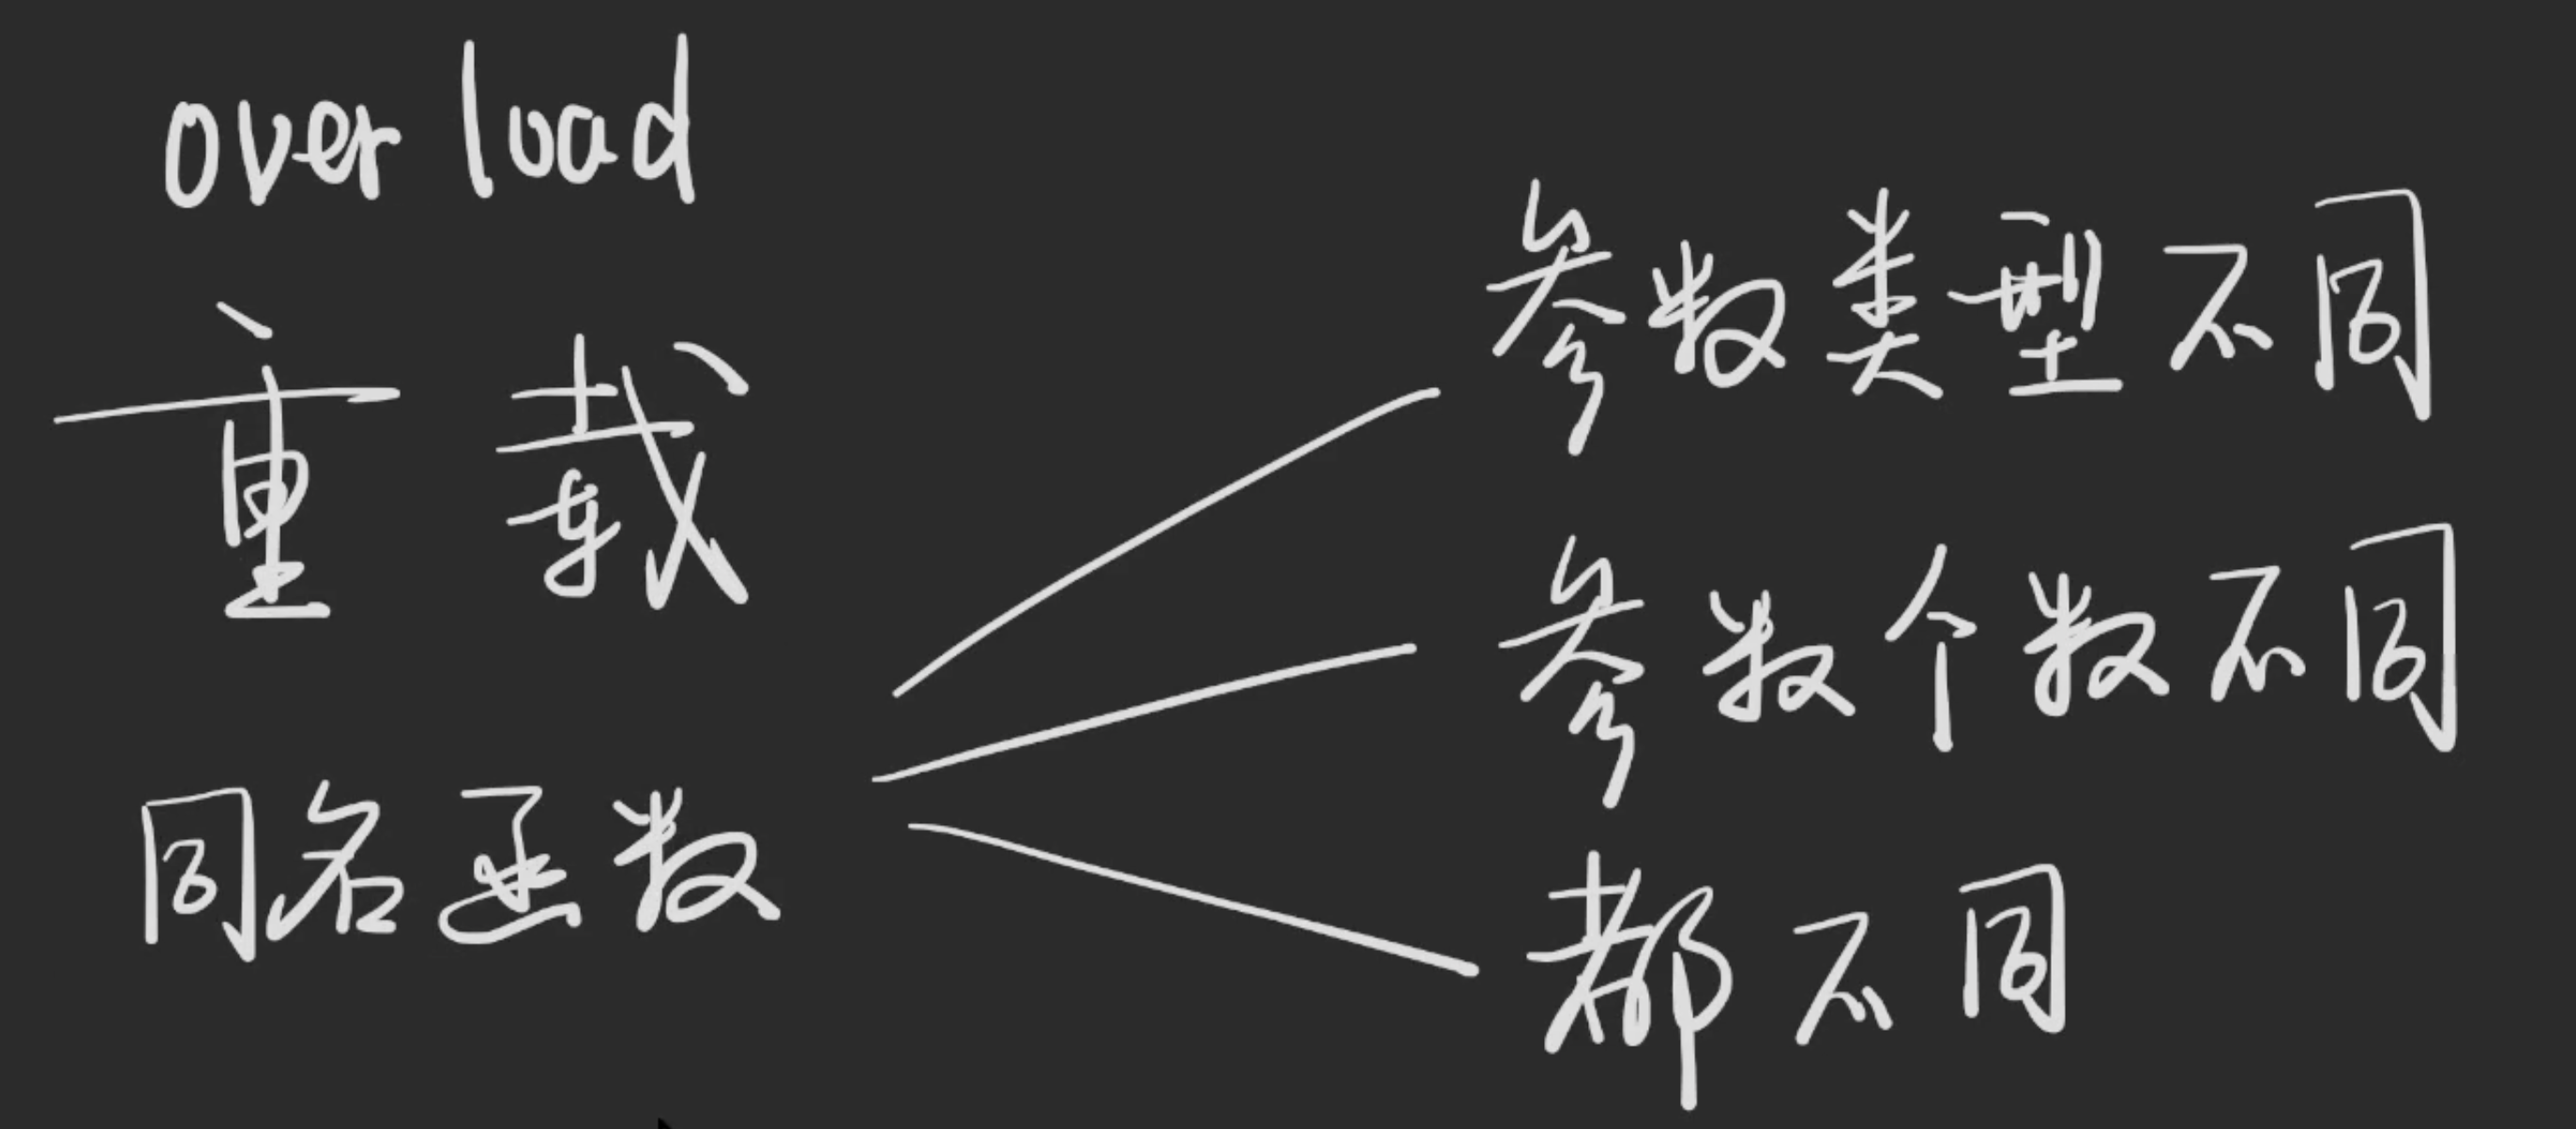 over load
重载
同名函数
参数类型不同
参数个数不同
都不同